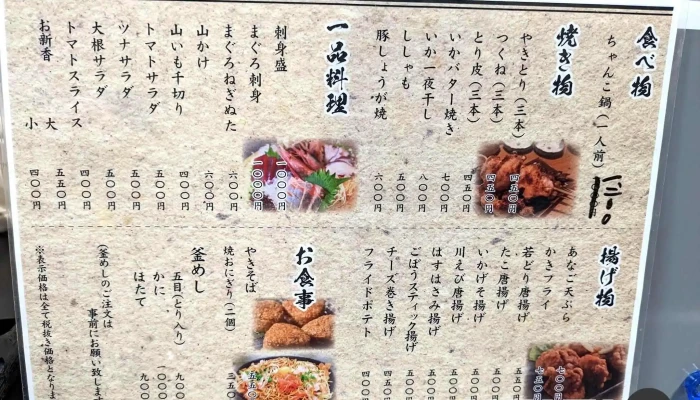 食べ物
ちゃんこ鍋(一人前)
焼き物
やきとり(三本) 四五〇円
つくね(三本) 四五〇円
とり皮(三本) 四五〇円
いかバター焼き 七〇〇円
いか一夜干し 八〇〇円
ししゃも 五〇〇円
豚しょうが焼 六〇〇円
一品料理
刺身盛 一〇〇〇円
まぐろ刺身 一〇〇〇円
まぐろねぎぬた 六〇〇円
山かけ 六〇〇円
山いも千切り 四〇〇円
トマトサラダ 五五〇円
ツナサラダ 五五〇円
大根サラダ
トマトスライス 四〇〇円
お新香 大 五五〇円
小 四〇〇円
揚げ物
あなご天ぷら 七〇〇円
かきフライ 七五〇円
若どり唐揚げ
たこ唐揚げ
いかげそ揚げ
川えび唐揚げ
はすはさみ揚げ
ごぼうスティック揚げ
チーズ巻き揚げ
フライドポテト
お食事
やきそば
焼おにぎり(二個)
釜めし
五目(とり入り)
かに
ほたて
(釜めしのご注文は
事前にお願い致します
※表示価格は全て税抜き価格となりま